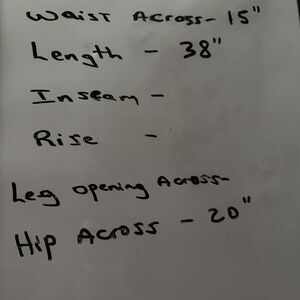 Waist Across - 15"
Length - 38"
Inseam -
Rise -
Leg opening Across-
Hip Across - 20"